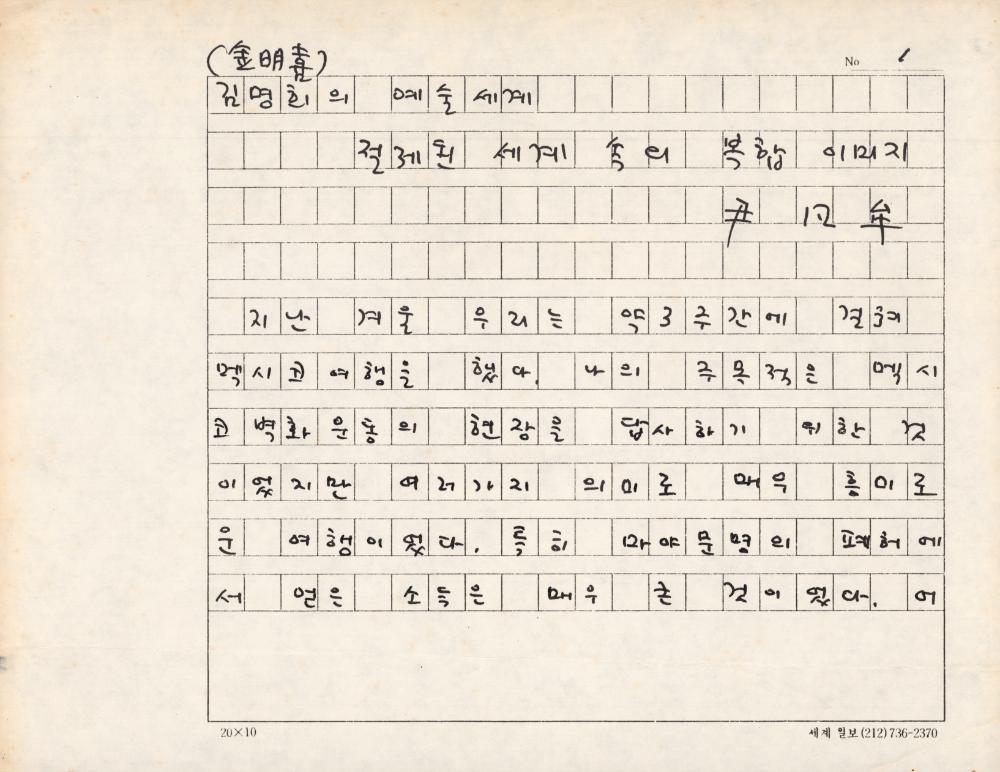 (金明喜)
No 1
김명희의 예술세계
절제된 세계 속의 복합 이미지
尹凡牟
지난 겨울 우리는 약 3주간에 걸쳐
멕시코 여행을 했다. 나의 주목적은 멕시
코 벽화운동의 현장을 답사하기 위한 것
이었지만 여러가지 의미로 매우 흥미로
운 여행이었다. 특히 마야문명의 폐허에
서 얻은 소득은 매우 큰 것이었다. 어
20×10 세계 일보 (212) 736-2370